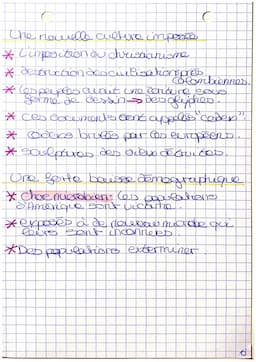 Une nouvelle culture imposée
* L'imposition du christianisme
* destruction des civilisations pré
colombiennes.
* les peuples avait une écriture sous
forme de dessin → des glyphes.
* Ces documents sont appelés "codex".
* codex brulés par les européens.
* sculptures des dieux détruites.
Une forte baisse démographique
* Choc microbien: les populations
d'Amérique sont victime
* exposés à de nouveau microbe qui
leurs sont inconnues.
* Des populations exterminer.